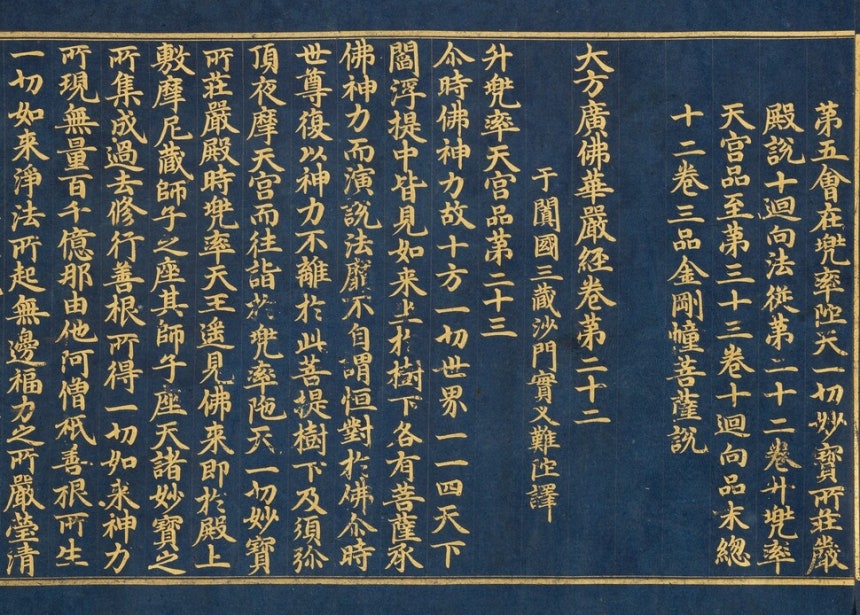 第五會在兜率陁天一切妙寶所莊嚴
殿說十迴向法從第二十二卷升兜率
天宮品至第三十三卷十迴向品末總
十二卷三品金剛幢菩薩說
大方廣佛華嚴經卷第二十二
于闐國三藏沙門實叉難陁譯
升兜率天宮品第二十三
尒時佛神力故十方一切世界一一四天下
閻浮提中皆見如來坐於樹下各有菩薩承
佛神力而演說法靡不自謂恒對於佛尒時
世尊復以神力不離於此菩提樹下及須弥
頂夜摩天宮而往詣於兜率陁天一切妙寶
所莊嚴殿時兜率天王遙見佛來即於殿上
敷摩尼藏師子之座其師子座天諸妙寶之
所集成過去修行善根所得一切如來神力
所現無量百千億那由他阿僧祇善根所生
一切如來淨法所起無邊福力之所嚴瑩清